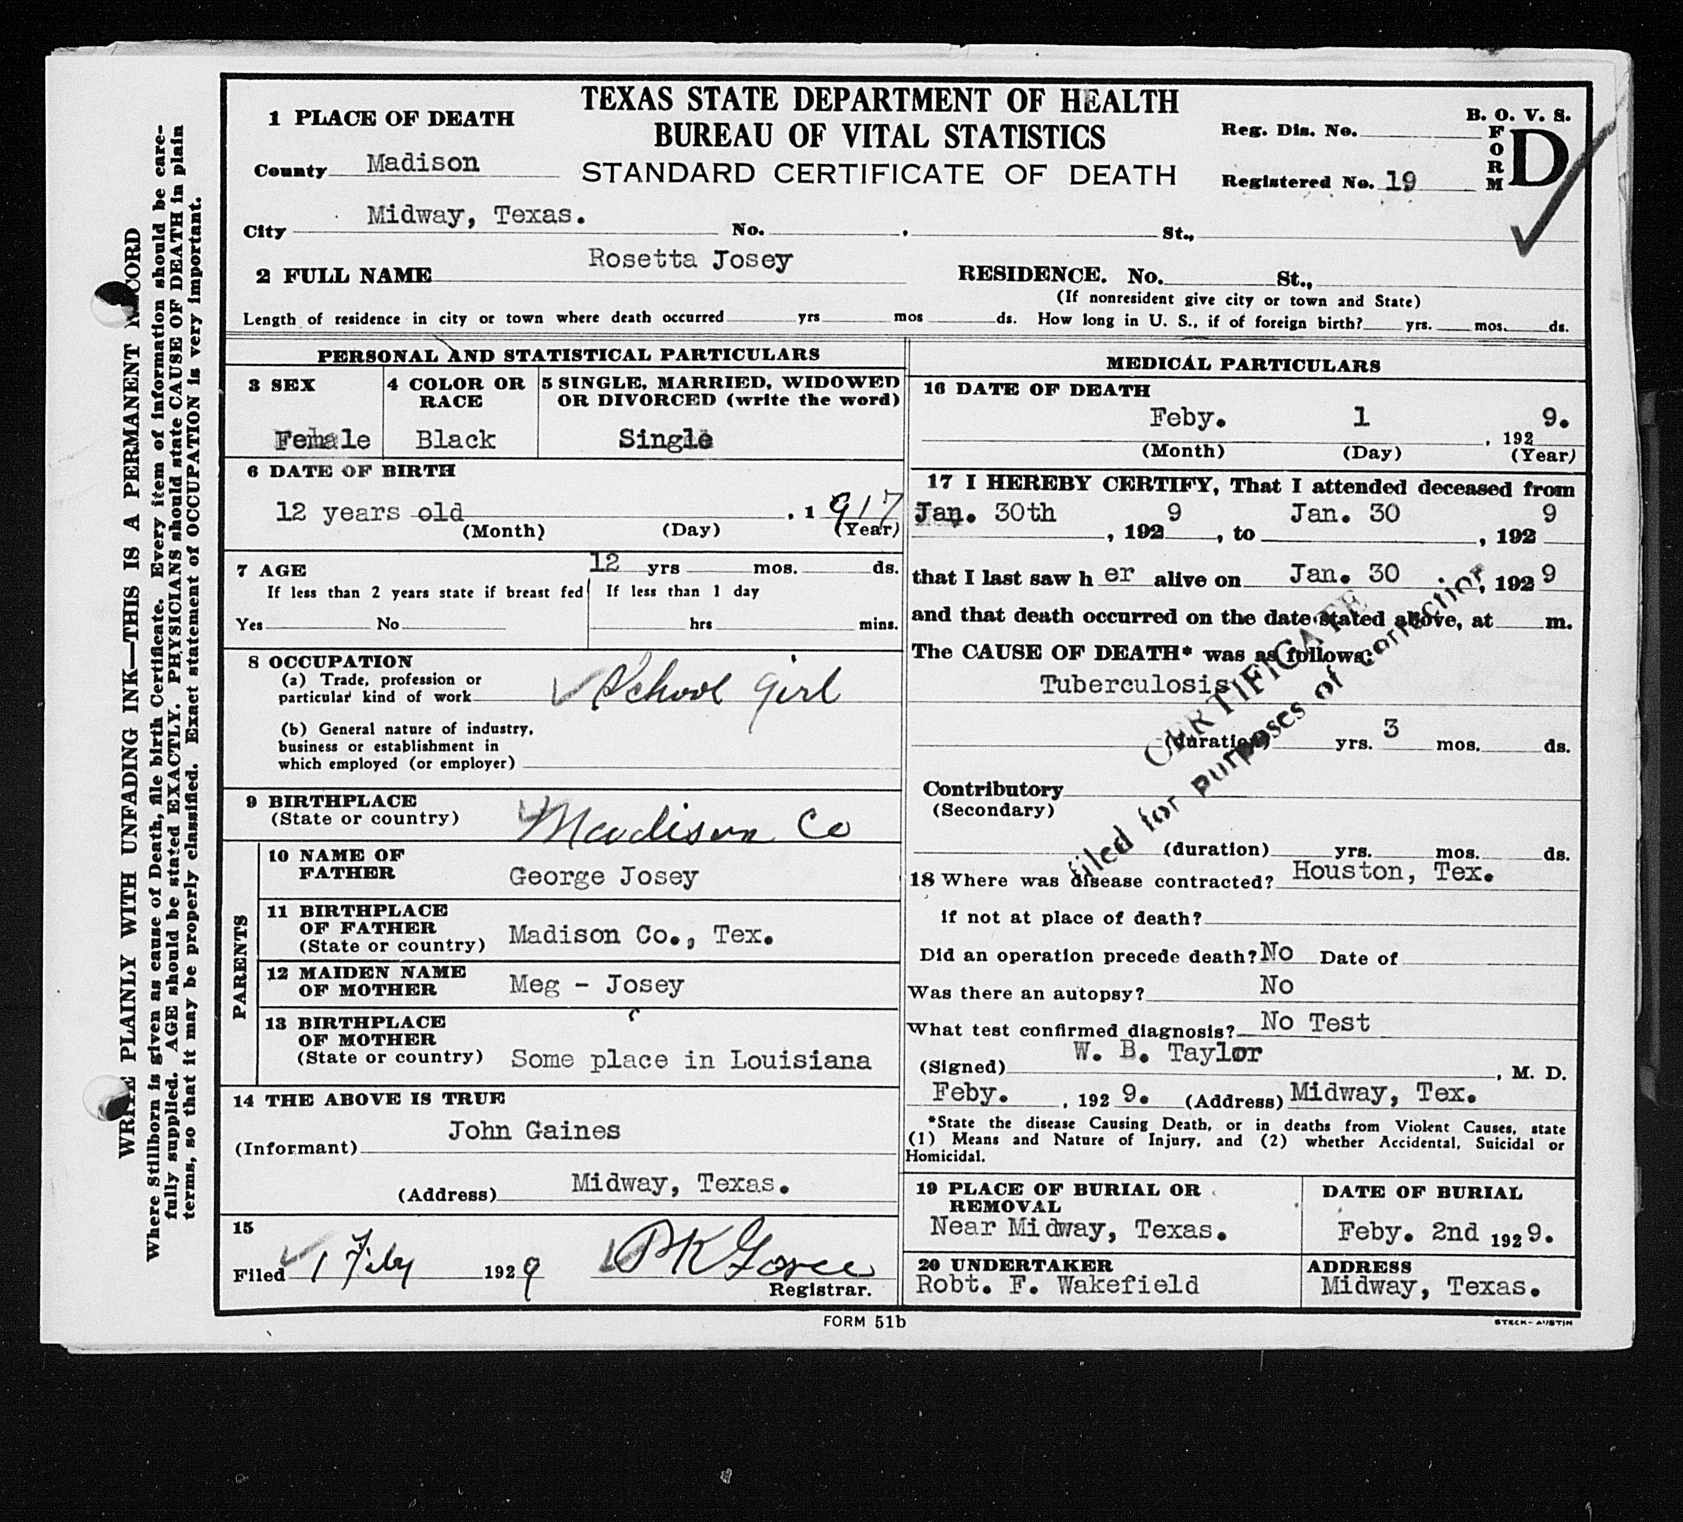 TEXAS STATE DEPARTMENT OF HEALTH
BUREAU OF VITAL STATISTICS
STANDARD CERTIFICATE OF DEATH
B. O. V. S.
FORM D
Reg. Dis. No.
Registered No. 19
1 PLACE OF DEATH
County Madison
City Midway, Texas. No. St.,
2 FULL NAME Rosetta Josey RESIDENCE. No. St.,
(If nonresident give city or town and State)
Length of residence in city or town where death occurred yrs mos ds. How long in U. S., if of foreign birth? yrs. mos. ds.
PERSONAL AND STATISTICAL PARTICULARS
3 SEX
Female
4 COLOR OR RACE
Black
5 SINGLE, MARRIED, WIDOWED
OR DIVORCED (write the word)
Single
6 DATE OF BIRTH
12 years old , 1917
(Month) (Day) (Year)
7 AGE 12 yrs mos. ds.
If less than 2 years state if breast fed If less than 1 day
Yes No hrs mins.
8 OCCUPATION
(a) Trade, profession or
particular kind of work School Girl
(b) General nature of industry,
business or establishment in
which employed (or employer)
9 BIRTHPLACE
(State or country) Madison Co
PARENTS
10 NAME OF
FATHER George Josey
11 BIRTHPLACE
OF FATHER
(State or country) Madison Co., Tex.
12 MAIDEN NAME
OF MOTHER Meg - Josey
13 BIRTHPLACE
OF MOTHER
(State or country) Some place in Louisiana
14 THE ABOVE IS TRUE
(Informant) John Gaines
(Address) Midway, Texas.
15
Filed 1 Feby 1929
Registrar.
MEDICAL PARTICULARS
16 DATE OF DEATH
Feby. 1 , 1929.
(Month) (Day) (Year)
17 I HEREBY CERTIFY, That I attended deceased from
Jan. 30th , 1929 , to Jan. 30 , 1929
that I last saw her alive on Jan. 30 , 1929
and that death occurred on the date stated above, at m.
The CAUSE OF DEATH* was as follows:
Tuberculosis
(duration) yrs. 3 mos. ds.
Contributory
(Secondary)
(duration) yrs. mos. ds.
CERTIFICATE
filed for purposes of correction
18 Where was disease contracted? Houston, Tex.
if not at place of death?
Did an operation precede death? No Date of
Was there an autopsy? No
What test confirmed diagnosis? No Test
(Signed) W. B. Taylor , M. D.
Feby. , 1929. (Address) Midway, Tex.
*State the disease Causing Death, or in deaths from Violent Causes, state
(1) Means and Nature of Injury, and (2) whether Accidental, Suicidal or
Homicidal.
19 PLACE OF BURIAL OR
REMOVAL
Near Midway, Texas.
DATE OF BURIAL
Feby. 2nd 1929.
20 UNDERTAKER
Robt. F. Wakefield
ADDRESS
Midway, Texas.
FORM 51b
STECK-AUSTIN
WRITE PLAINLY WITH UNFADING INK—THIS IS A PERMANENT RECORD
Where Stillborn is given as cause of Death, file birth Certificate. Every item of information should be care-
fully supplied. AGE should be stated EXACTLY. PHYSICIANS should state CAUSE OF DEATH in plain
terms, so that it may be properly classified. Exact statement of OCCUPATION is very important.